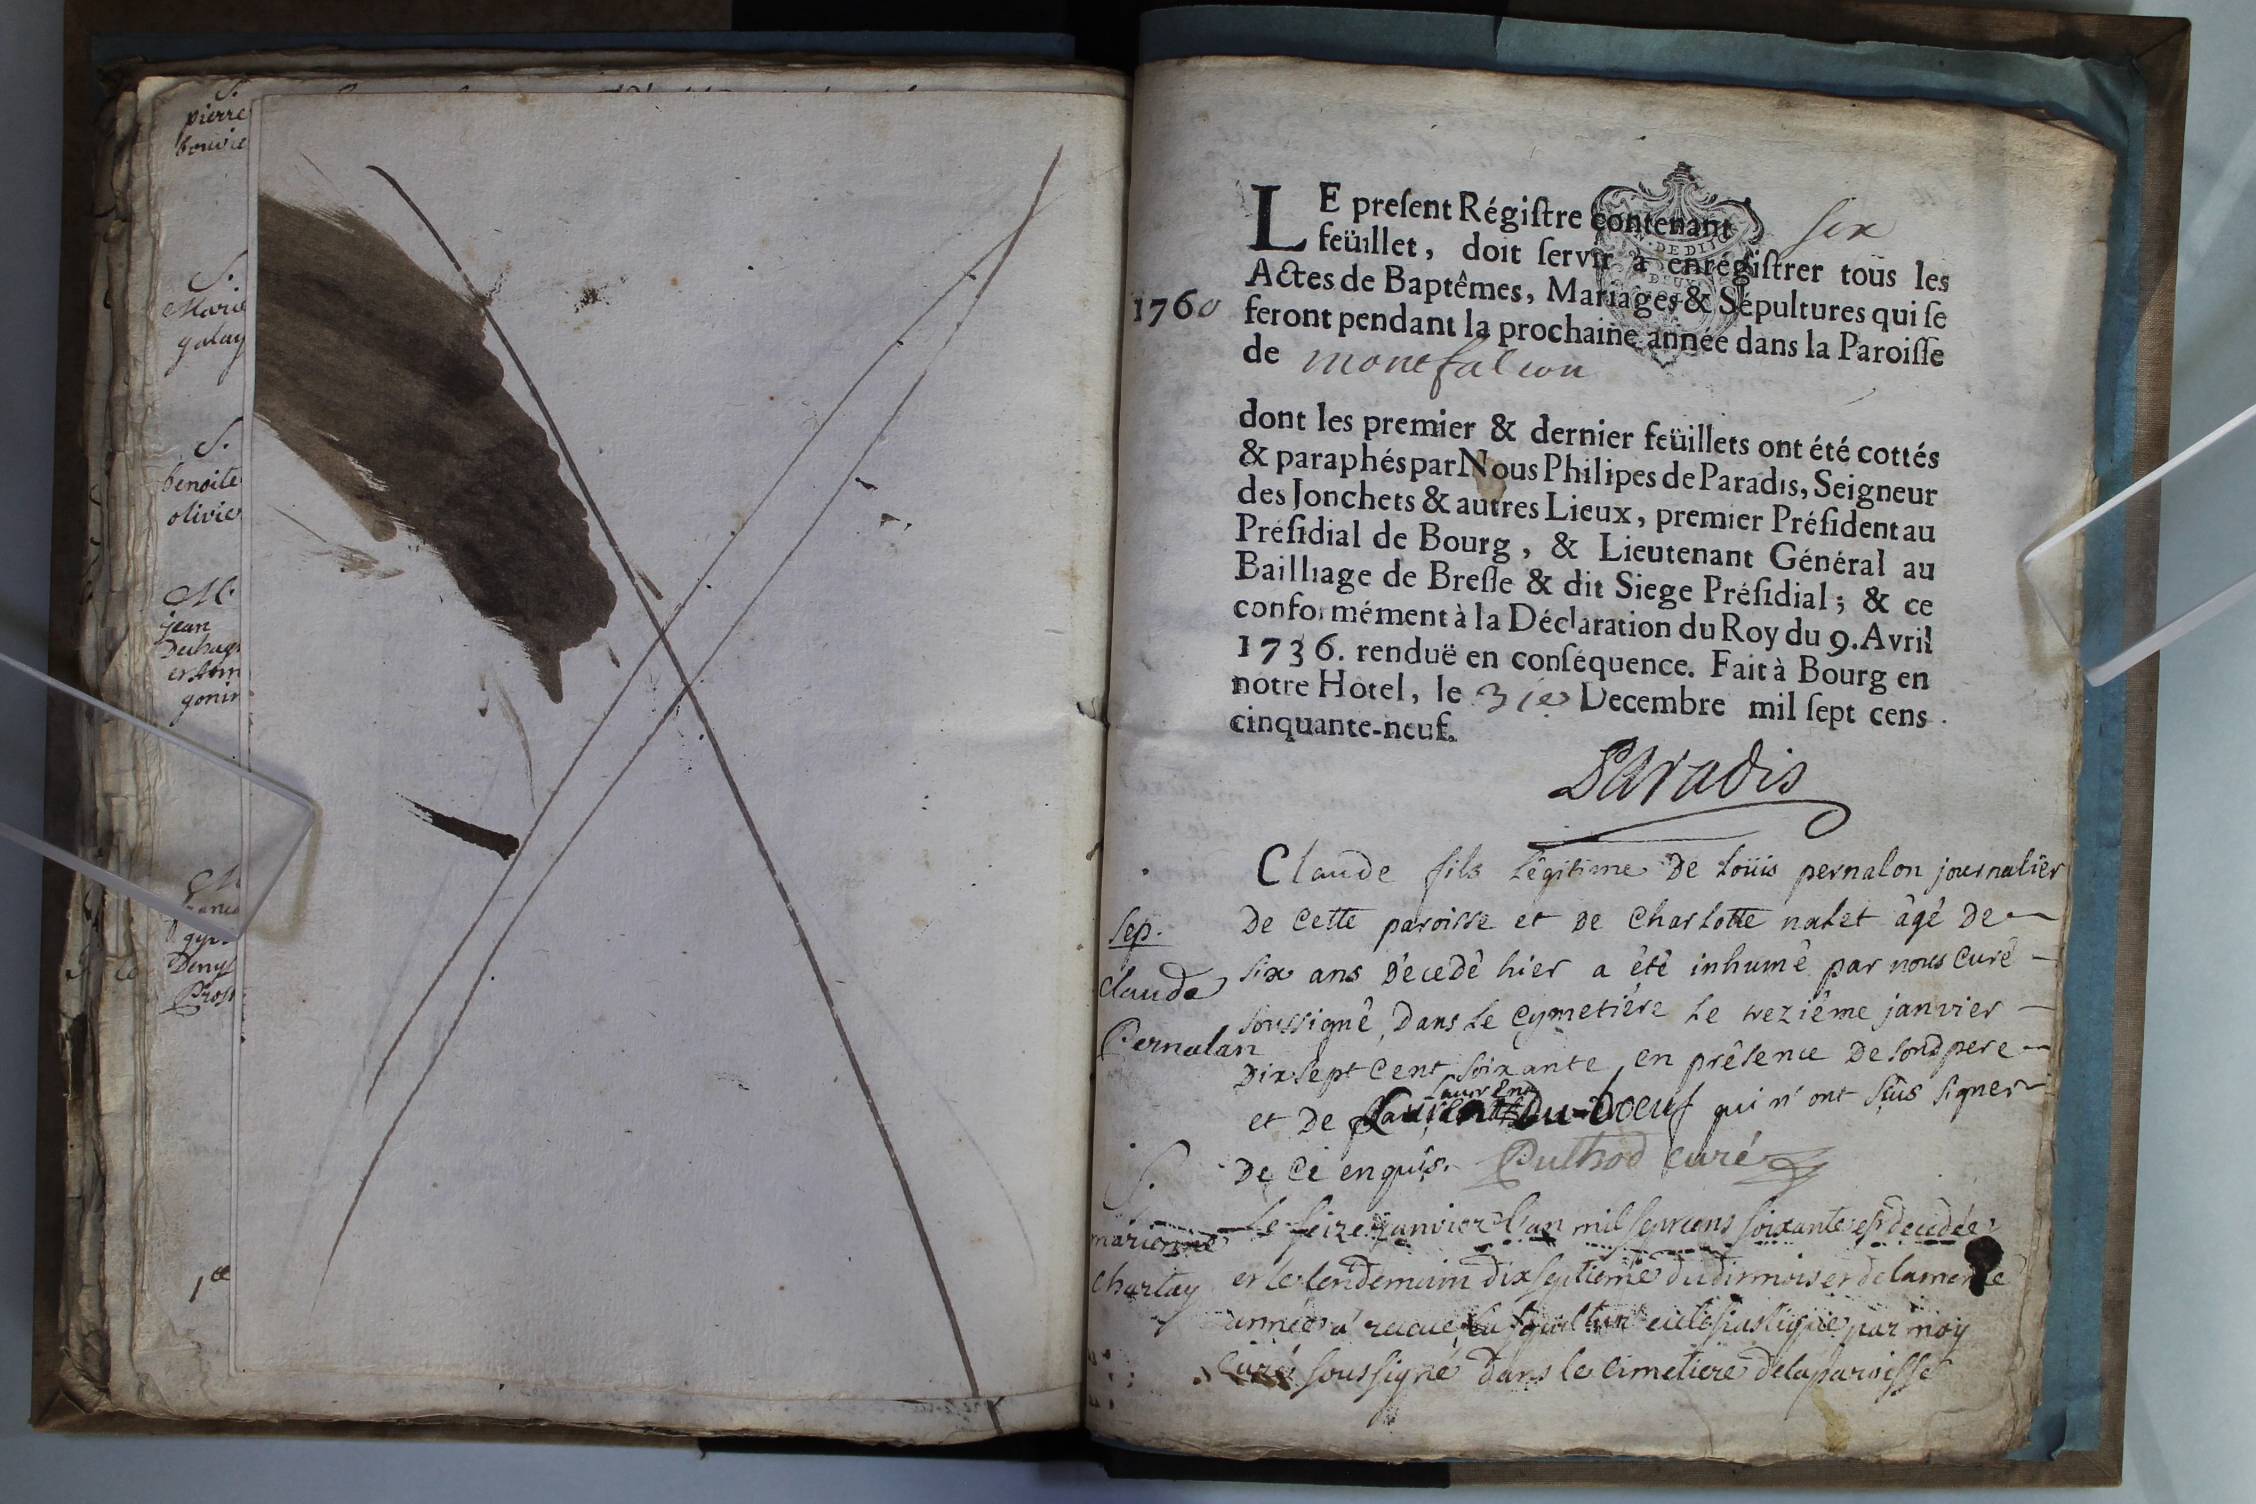 S.
pierre
bouvie
S.
Marie
galay
S.
benoite
olivier
M.
jean
Duhag
et
gonin
M
Deny
Pros
1760
LE preſent Régiſtre contenant six
feüillet, doit ſervir à enrégiſtrer tous les
Actes de Baptêmes, Mariages & Sépultures qui ſe
feront pendant la prochaine année dans la Paroiſſe
de montfalcon
dont les premier & dernier feüillets ont été cottés
& paraphés par Nous Philipes de Paradis, Seigneur
des Jonchets & autres Lieux, premier Préſident au
Préſidial de Bourg, & Lieutenant Général au
Bailliage de Breſſe & dit Siege Préſidial; & ce
conformément à la Déclaration du Roy du 9. Avril
1736. renduë en conſéquence. Fait à Bourg en
notre Hotel, le 31e Decembre mil ſept cens
cinquante-neuf.
Paradis
Sep.
Claude
Pernalan
Claude fils légitime de loüis pernalon journalier
de cette paroisse et de Charlotte nalet âgé de
six ans décedé hier a été inhumé par nous Curé
soussigné, dans le cymetiére le trezième janvier
dix sept cent soixante, en présence de sond pere
et de laurent Du-boeuf qui n'ont sçûs signer
de ce enquis. Puthod curé
S.
marienne
Charlay
Le seize janvier l'an mil sept cens soixante est decedée
et le lendemain dix septieme dudit mois et de la meme
année a recue la sepulture eclesiastique par moy
Curé soussigné dans le cimetiere de la paroisse